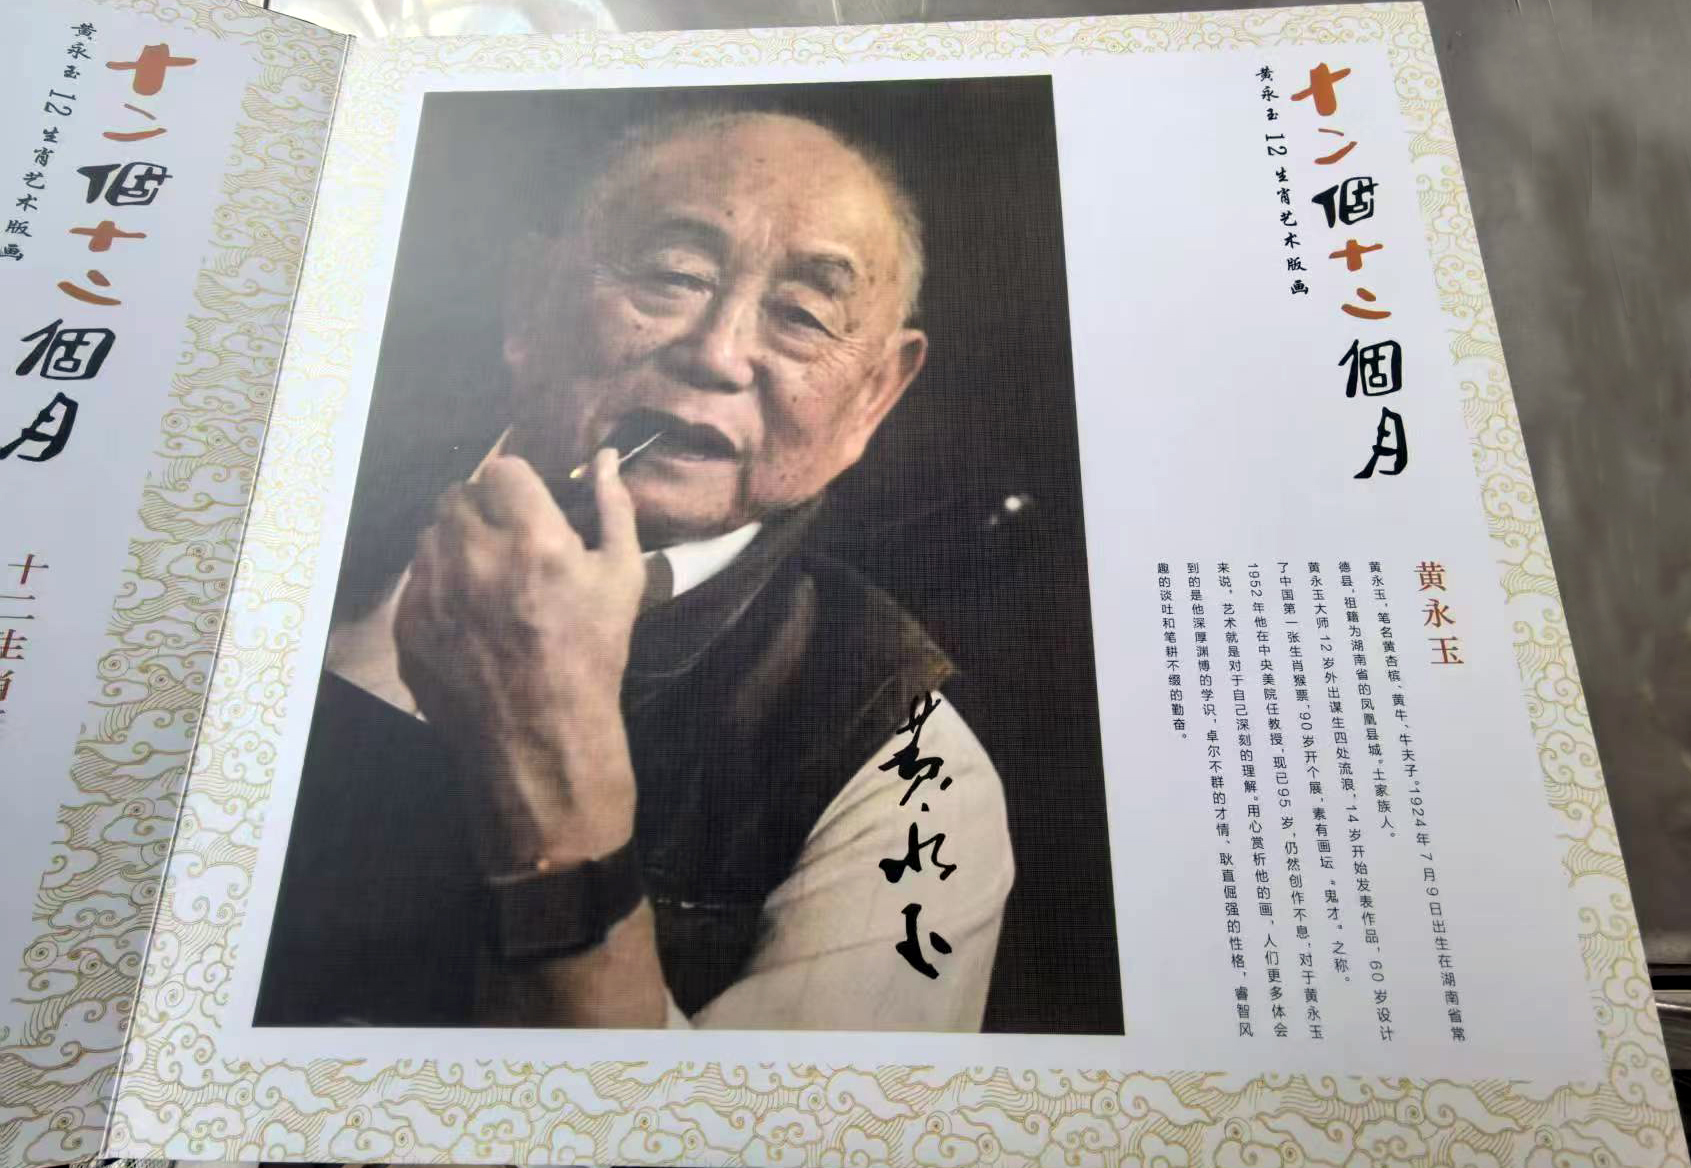 十二個十二個月
黄永玉12生肖艺术版画
黄永玉
黄永玉，笔名黄杏槟、黄牛、牛夫子。1924年7月9日出生在湖南省常
德县，祖籍为湖南省的凤凰县城。土家族人。
黄永玉大师12岁外出谋生四处流浪，14岁开始发表作品，60岁设计
了中国第一张生肖猴票，90岁开个展，素有画坛“鬼才”之称。
1952年他在中央美院任教授，现已95岁，仍然创作不息，对于黄永玉
来说，艺术就是对于自己深刻的理解。用心赏析他的画，人们更多体会
到的是他深厚渊博的学识，卓尔不群的才情、耿直倔强的性格，睿智风
趣的谈吐和笔耕不缀的勤奋。
黄永玉
十二個十二個月
黄永玉12生肖艺术版画
十二生肖